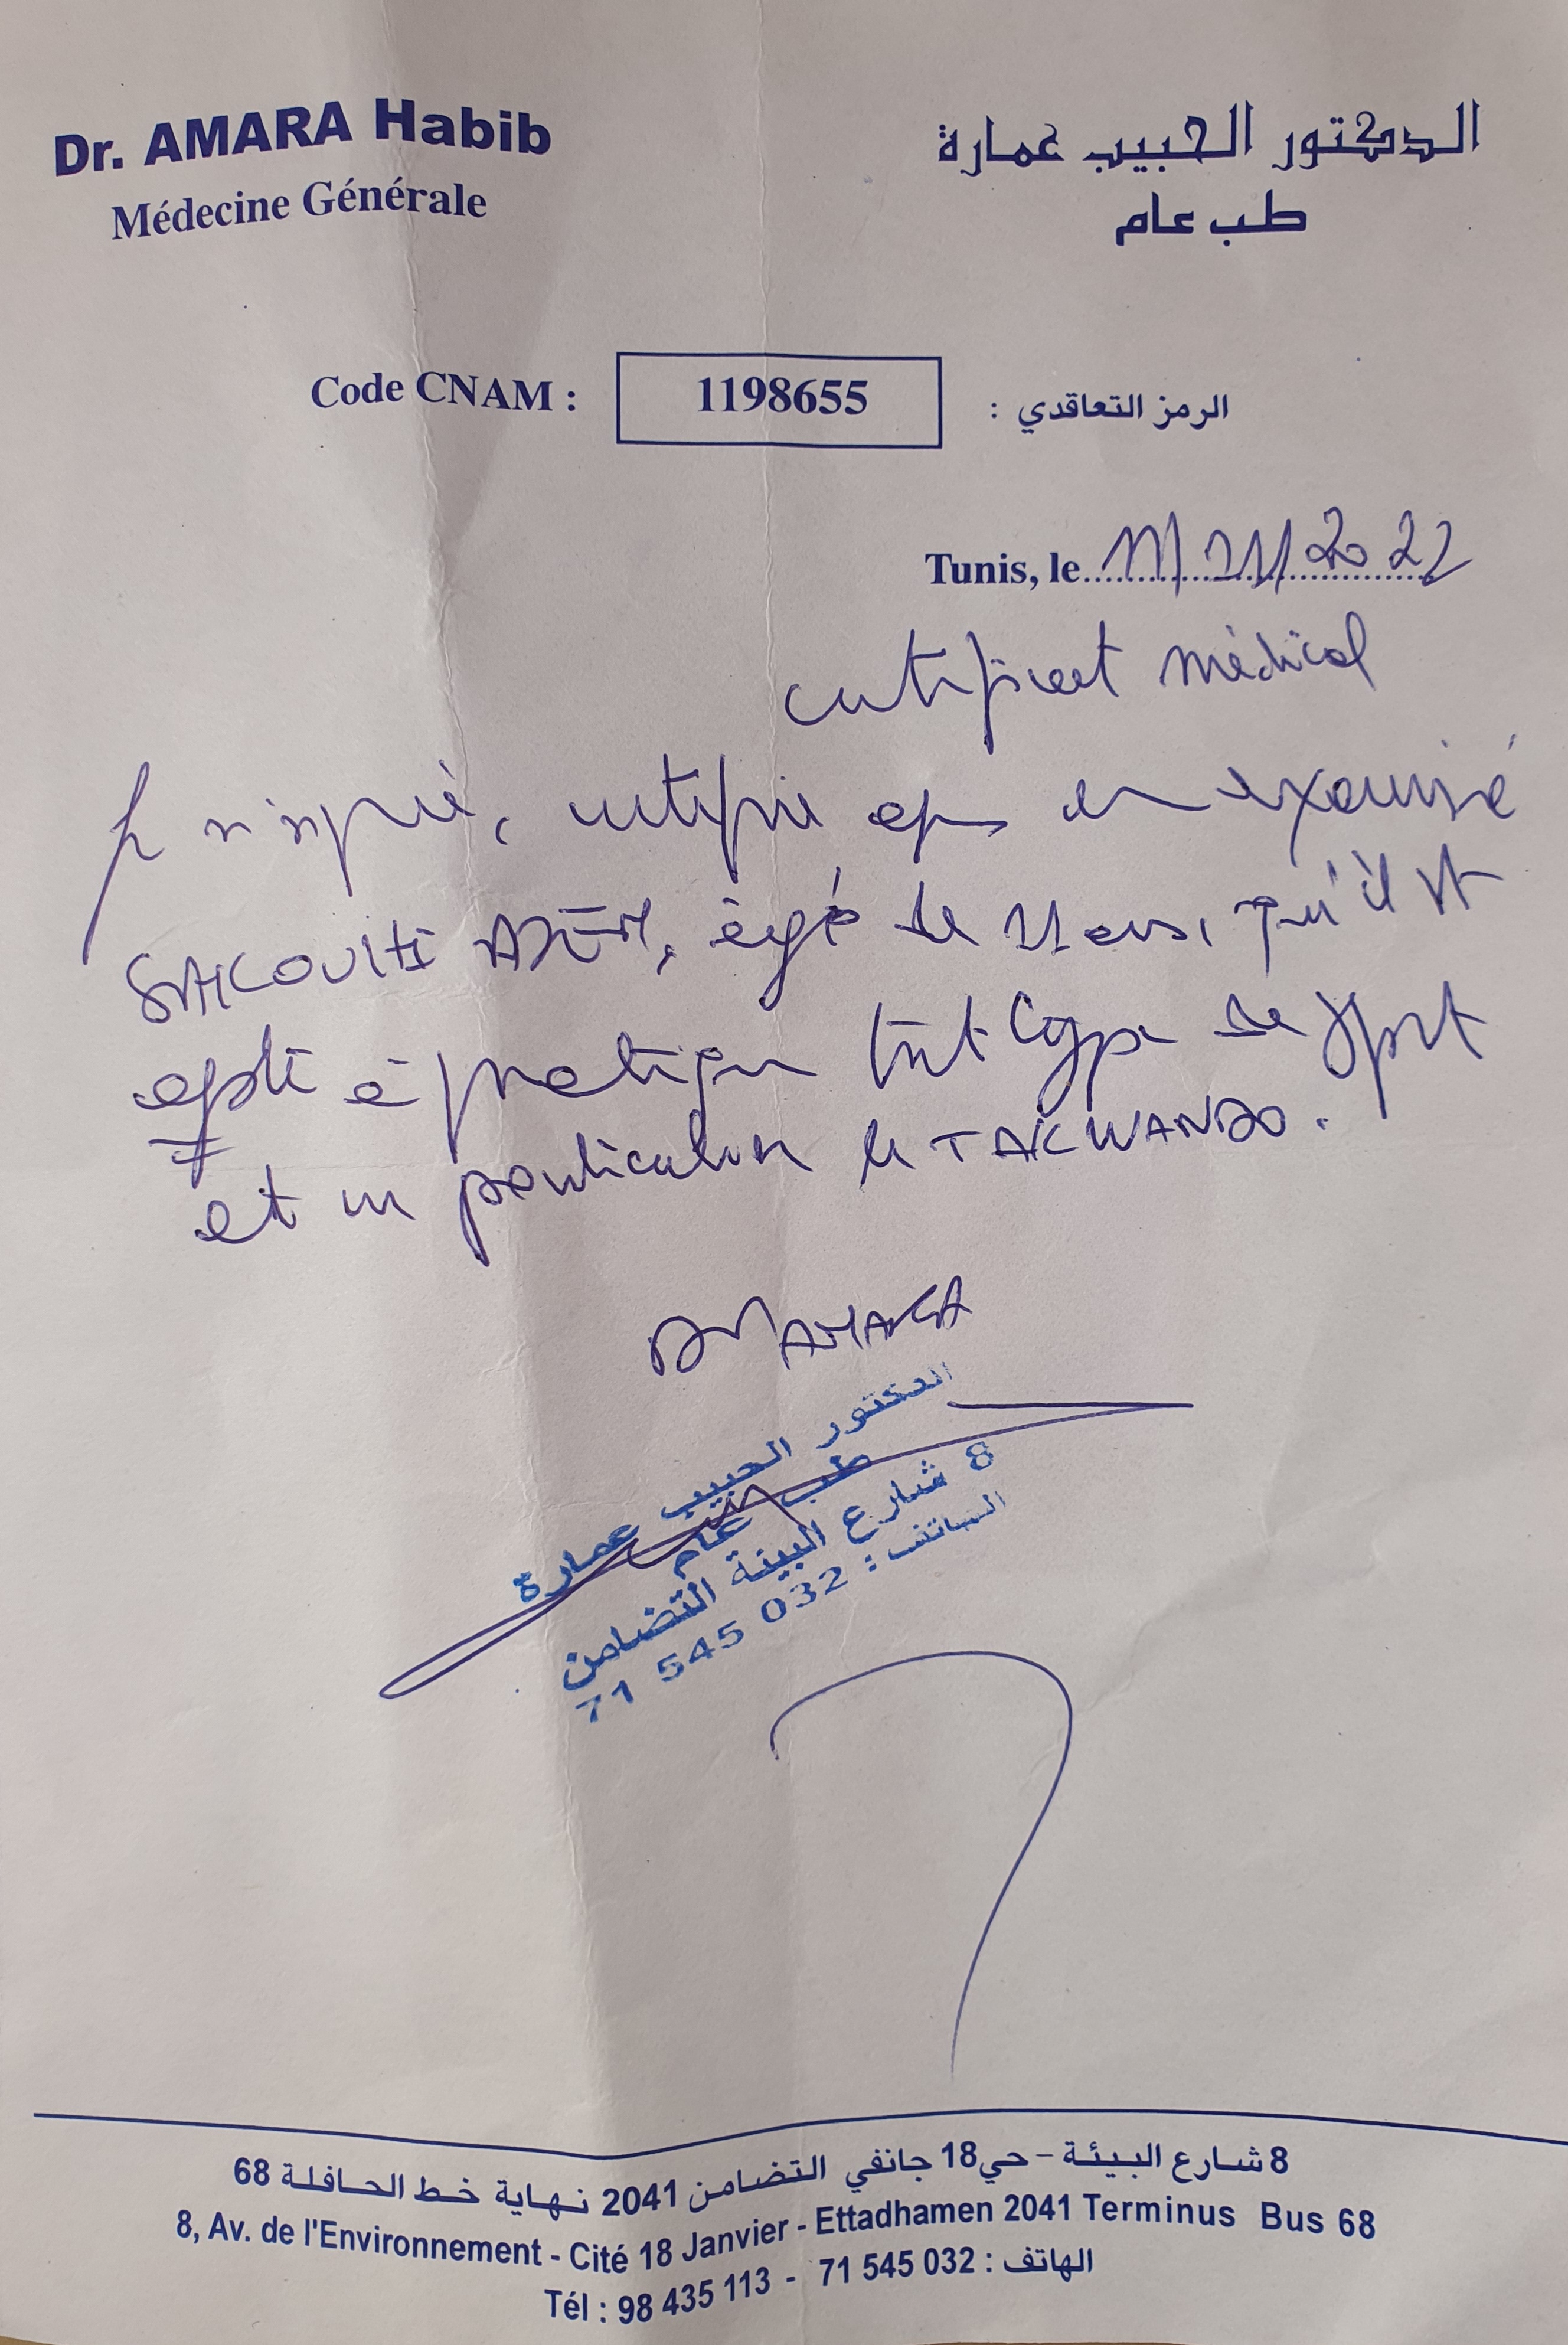 Dr. AMARA Habib
Médecine Générale
الدكتور الحبيب عمارة
طب عام
Code CNAM : 1198655 الرمز التعاقدي :
Tunis, le
certificat médical
Je soussigné, certifie après en examiné
ADEM, âgé de 11 ans, qu'il est
apte à pratiquer tout type de sport
et en particulier le TAIKWANDO.
Dr AMARA
الدكتور الحبيب عمارة
طب عام
8 شارع البيئة التضامن
الهاتف : 71 545 032
8 شارع البيئة - حي 18 جانفي التضامن 2041 نهاية خط الحافلة 68
8, Av. de l'Environnement - Cité 18 Janvier - Ettadhamen 2041 Terminus Bus 68
Tél : 98 435 113 - 71 545 032 : الهاتف